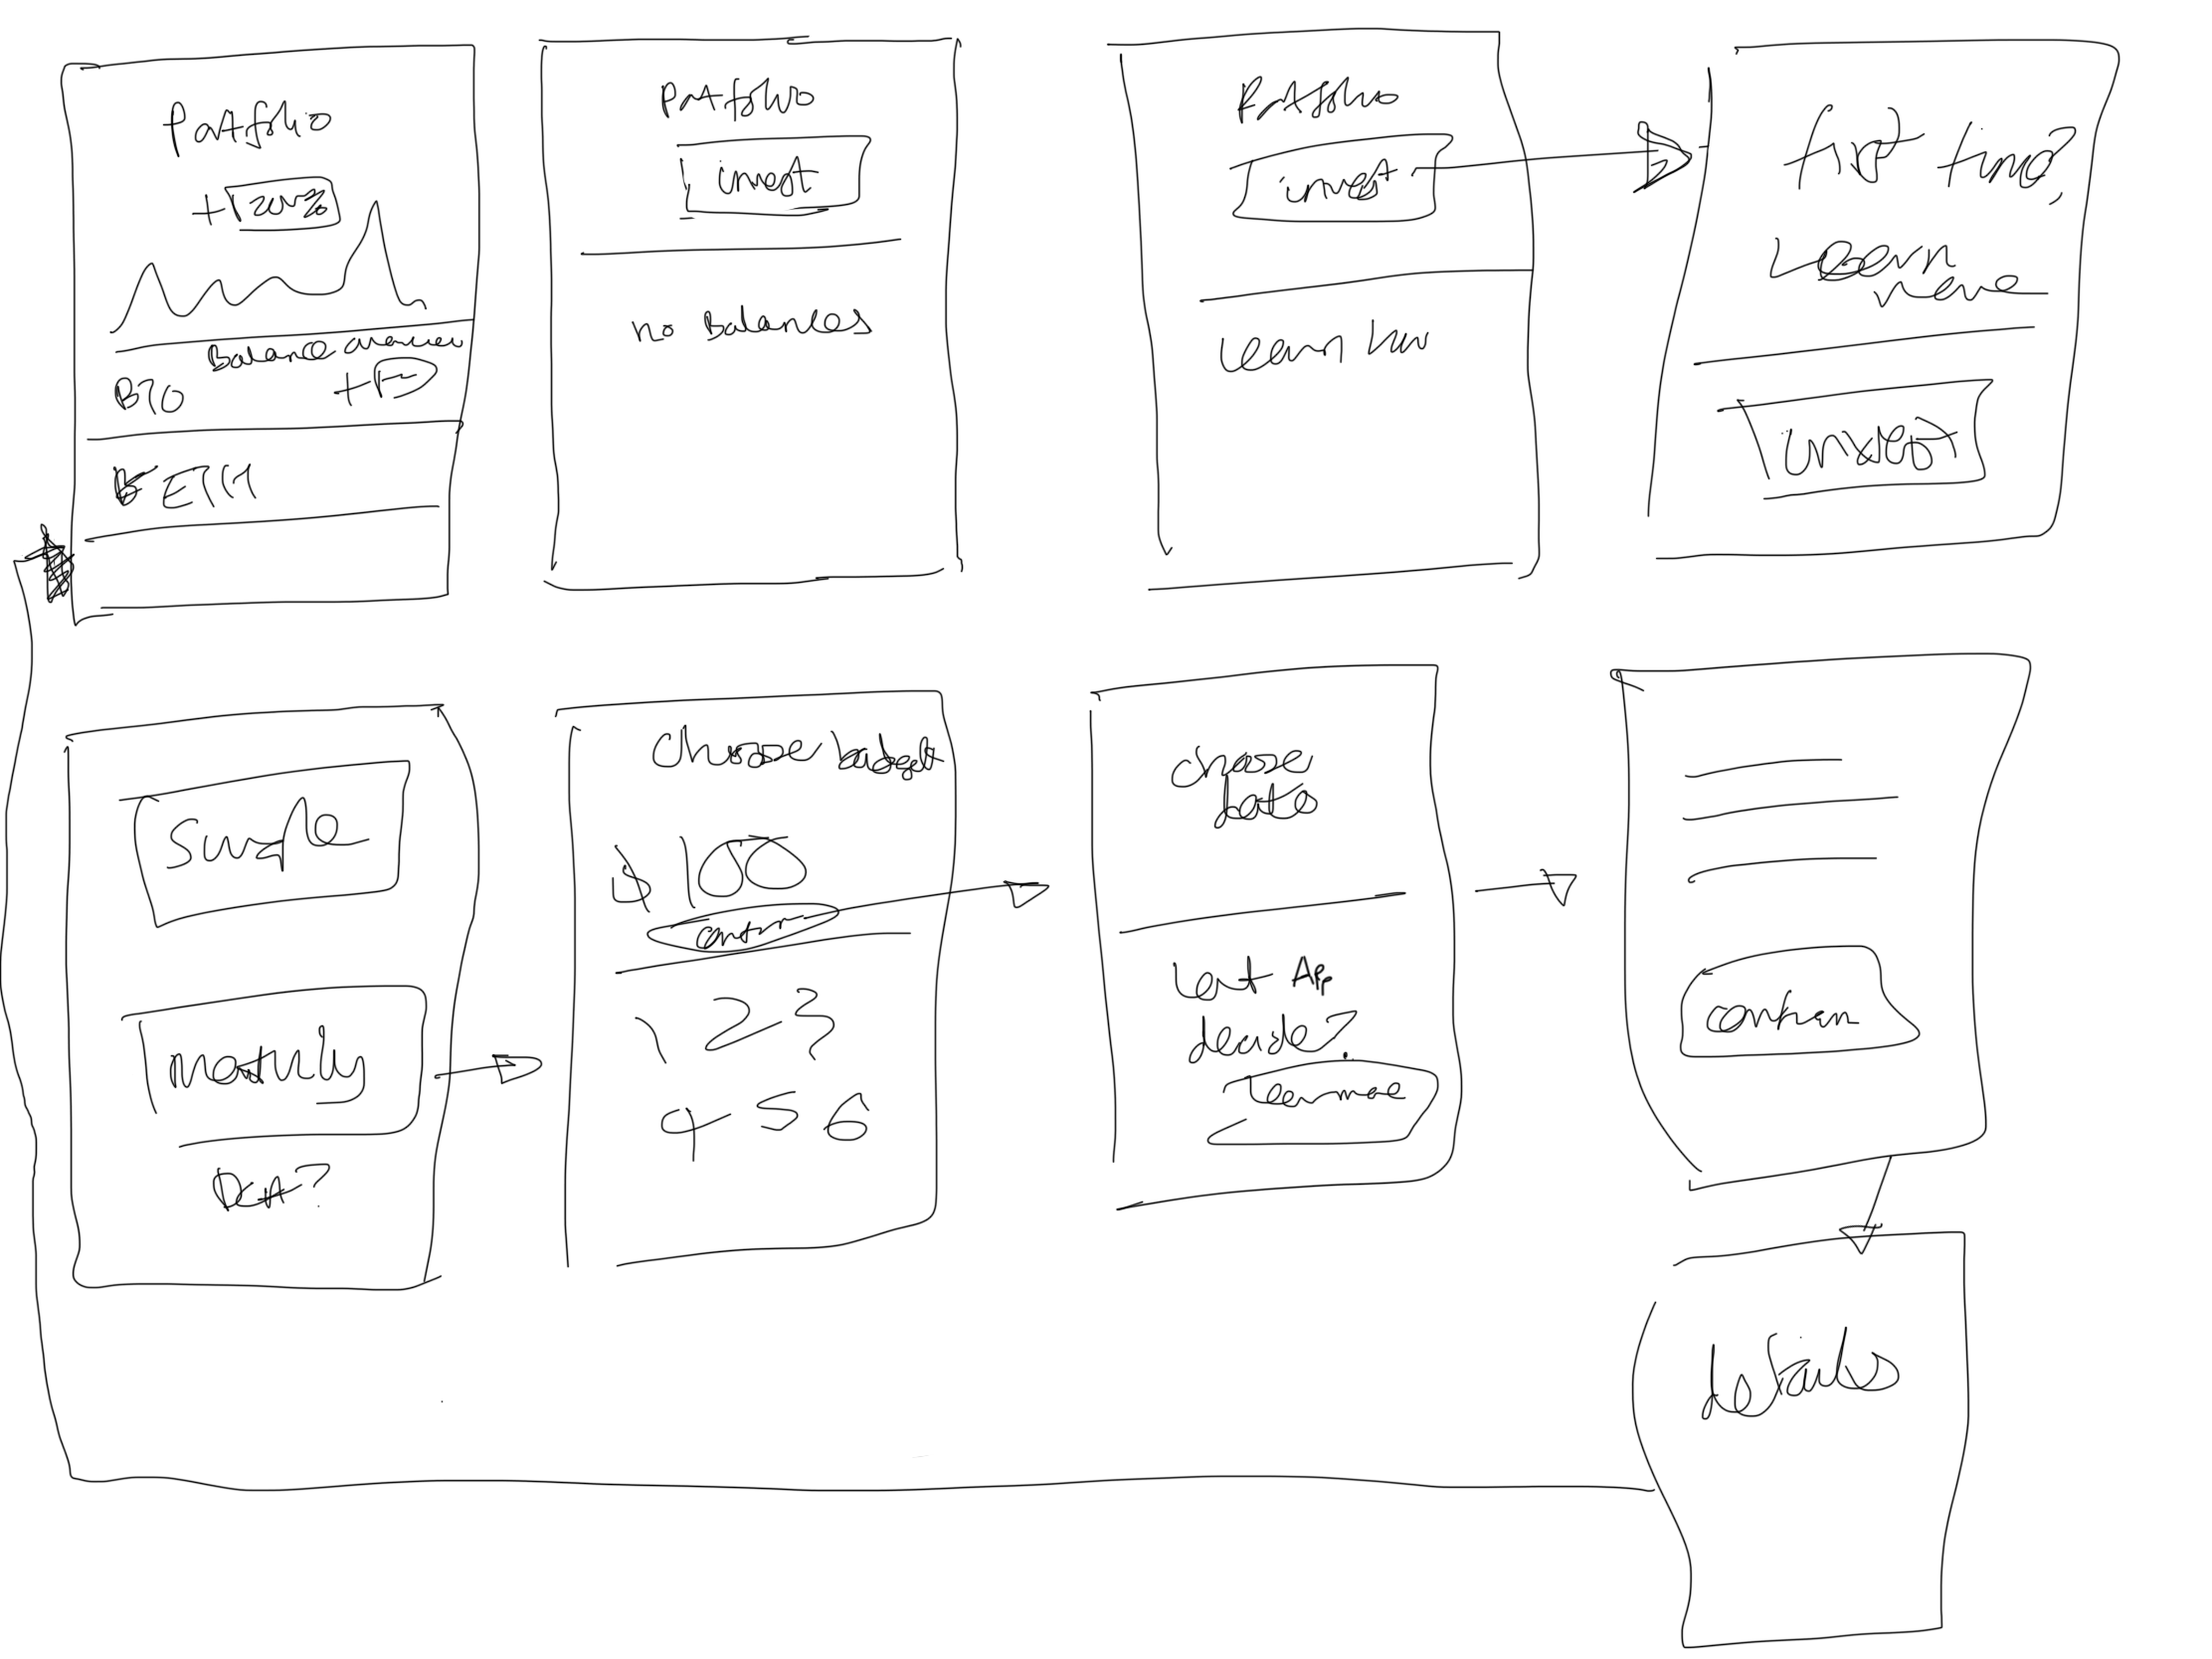 Portfolio
+ 200%
Balance overview
BTC
+
ETH
Portfolio
invest
no Balances
Portfolio
invest
learn how
first time?
Learn
here
invest
Single
monthly
DCA?
choose budget
$100
confirm
1 2 3
4 5 6
choose
date
Let App
decide?
learn more
confirm
details